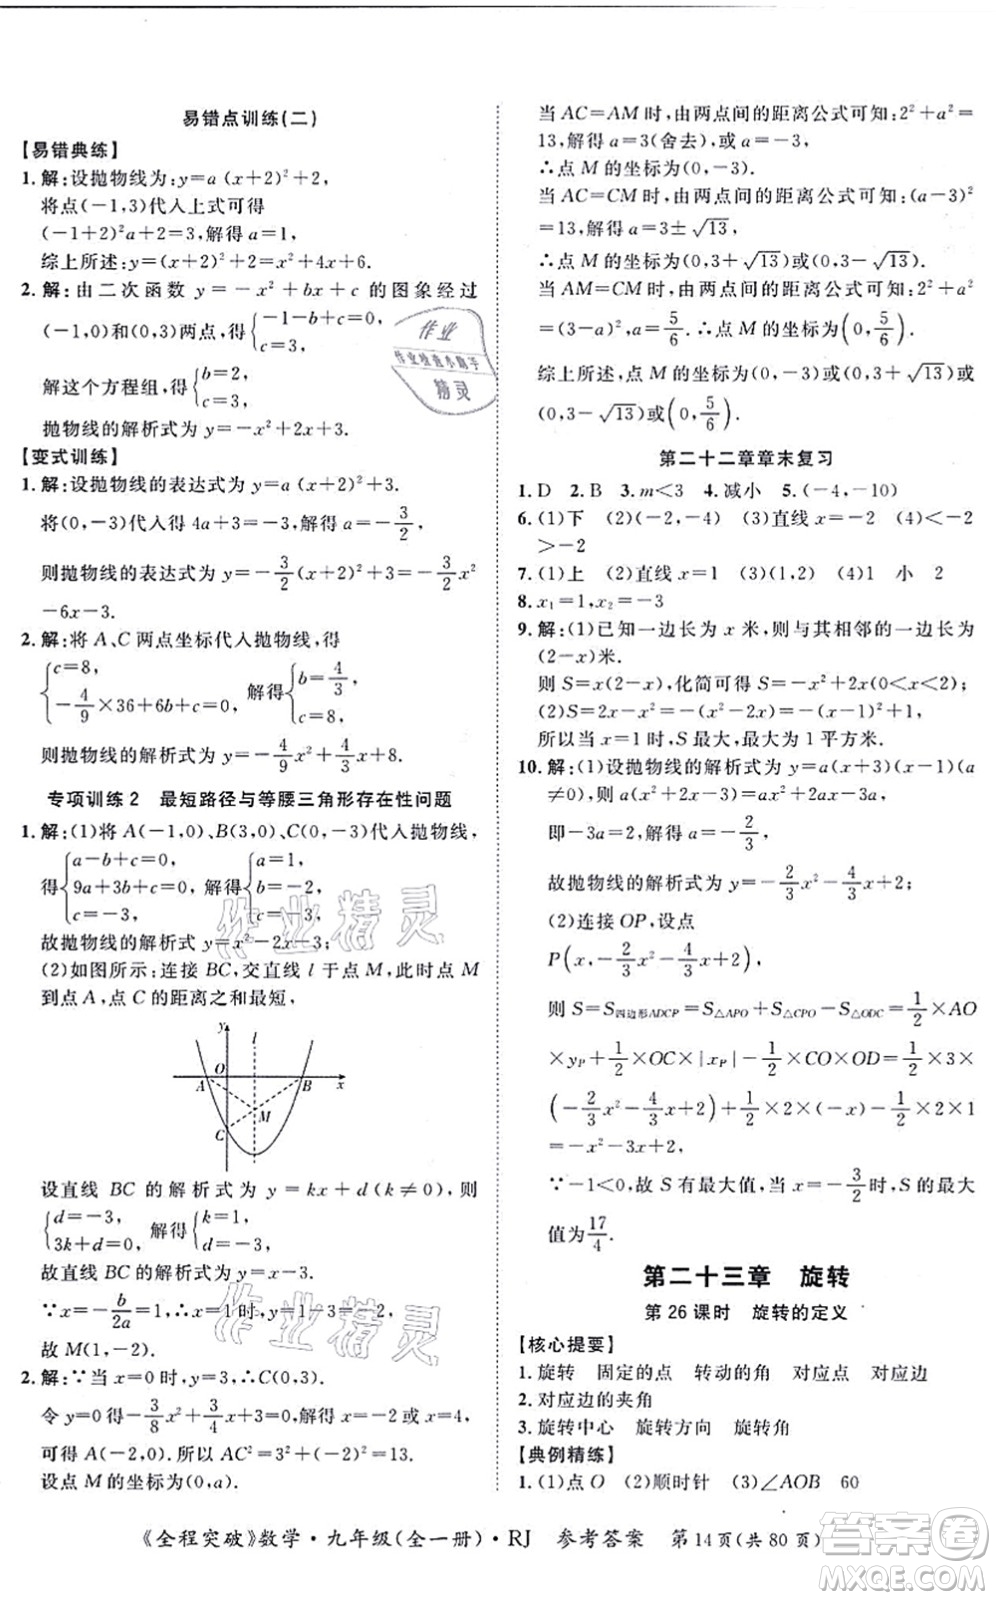 易错点训练(二)
【易错典练】
1.解:设抛物线为:y=a(x+2)²+2,
将点(-1,3)代入上式可得
(-1+2)²a+2=3,解得a=1,
综上所述:y=(x+2)²+2=x²+4x+6.
2.解:由二次函数y=-x²+bx+c的图象经过
(-1,0)和(0,3)两点,得{-1-b+c=0, c=3,
解这个方程组,得{b=2, c=3,
抛物线的解析式为y=-x²+2x+3.
【变式训练】
1.解:设抛物线的表达式为y=a(x+2)²+3,
将(0,-3)代入得4a+3=-3,解得a=-3/2,
则抛物线的表达式为y=-3/2(x+2)²+3=-3/2x²
-6x-3.
2.解:将A、C两点坐标代入抛物线,得
{c=8, -4/9×36+6b+c=0, 解得{b=4/3, c=8,
则抛物线的解析式为y=-4/9x²+4/3x+8.
专项训练2 最短路径与等腰三角形存在性问题
1.解:(1)将A(-1,0),B(3,0),C(0,-3)代入抛物线,
得{a-b+c=0, 9a+3b+c=0, c=-3, 解得{a=1, b=-2, c=-3,
故抛物线的解析式y=x²-2x-3;
(2)如图所示:连接BC,交直线l于点M,此时点M
到点A,点C的距离之和最短,
y
l
A
O
B
x
M
C
设直线BC的解析式为y=kx+d(k≠0),则
{d=-3, 3k+d=0, 解得{k=1, d=-3,
故直线BC的解析式为y=x-3,
∵x=-b/2a=1,∴x=1时,y=-2,
故M(1,-2).
2.解:当x=0时,y=3,∴C(0,3).
令y=0得-3/8x²+3/4x+3=0,解得x=-2或x=4,
可得A(-2,0).所以AC²=2²+3²=13.
设点M的坐标为(0,a).
当AC=AM时,由两点间的距离公式可知:2²+a²=
13,解得a=3(舍去)或a=-3.
∴点M的坐标为(0,-3).
当AC=CM时,由两点间的距离公式可知:(a-3)²
=13,解得:a=3±√13.
∴点M的坐标为(0,3+√13)或(0,3-√13).
当AM=CM时,由两点间的距离公式可知:2²+a²
=(3-a)²,解得:a=5/6.∴点M的坐标为(0,5/6).
综上所述,点M的坐标为(0,-3)或(0,3+√13)或
(0,3-√13)或(0,5/6).
第二十二章章末复习
1.D 2.B 3.m<3 4.减小 5.(-4,-10)
6.(1)下 (2)(-2,-4) (3)直线x=-2 (4)<-2
>-2
7.(1)上 (2)直线x=1 (3)(1,2) (4)1 小 2
8.x₁=1,x₂=-3
9.解:(1)已知一边长为x米,则与其相邻的一边长为
(2-x)米.
则S=x(2-x),化简可得S=-x²+2x(0<x<2);
(2)S=2x-x²=-(x²-2x)=-(x-1)²+1,
所以当x=1时,S最大,最大为1平方米.
10.解:(1)设抛物线的表达式为y=a(x+3)(x-1)(a
≠0)=a(x²+2x-3)=ax²+2ax-3a,
即-3a=2,解得a=-2/3,
故抛物线的解析式为y=-2/3x²-4/3x+2;
(2)连接OP,设点
P(x,-2/3x²-4/3x+2),
则S=S四边形ADCP=S△APO+S△CPO-S△ODC=1/2×AO
×yP+1/2×OC×|xP|-1/2×CO×OD=1/2×3×
(-2/3x²-4/3x+2)+1/2×2×(-x)-1/2×2×1
=-x²-3x+2,
∵-1<0,故S有最大值,当x=-3/2时,S的最大
值为17/4.
第二十三章 旋转
第26课时 旋转的定义
【核心提要】
1.旋转 固定的点 转动的角 对应点 对应点
2.对应边的夹角
3.旋转中心 旋转方向 旋转角
【典例精练】
1.(1)点O (2)顺时针 (3)∠AOB 60
《全程突破》数学·九年级(全一册)·RJ 参考答案 第14页(共80页)
作业
作业检查小助手
精灵
作业精灵
作业精灵
答案圈
MXQE.COM